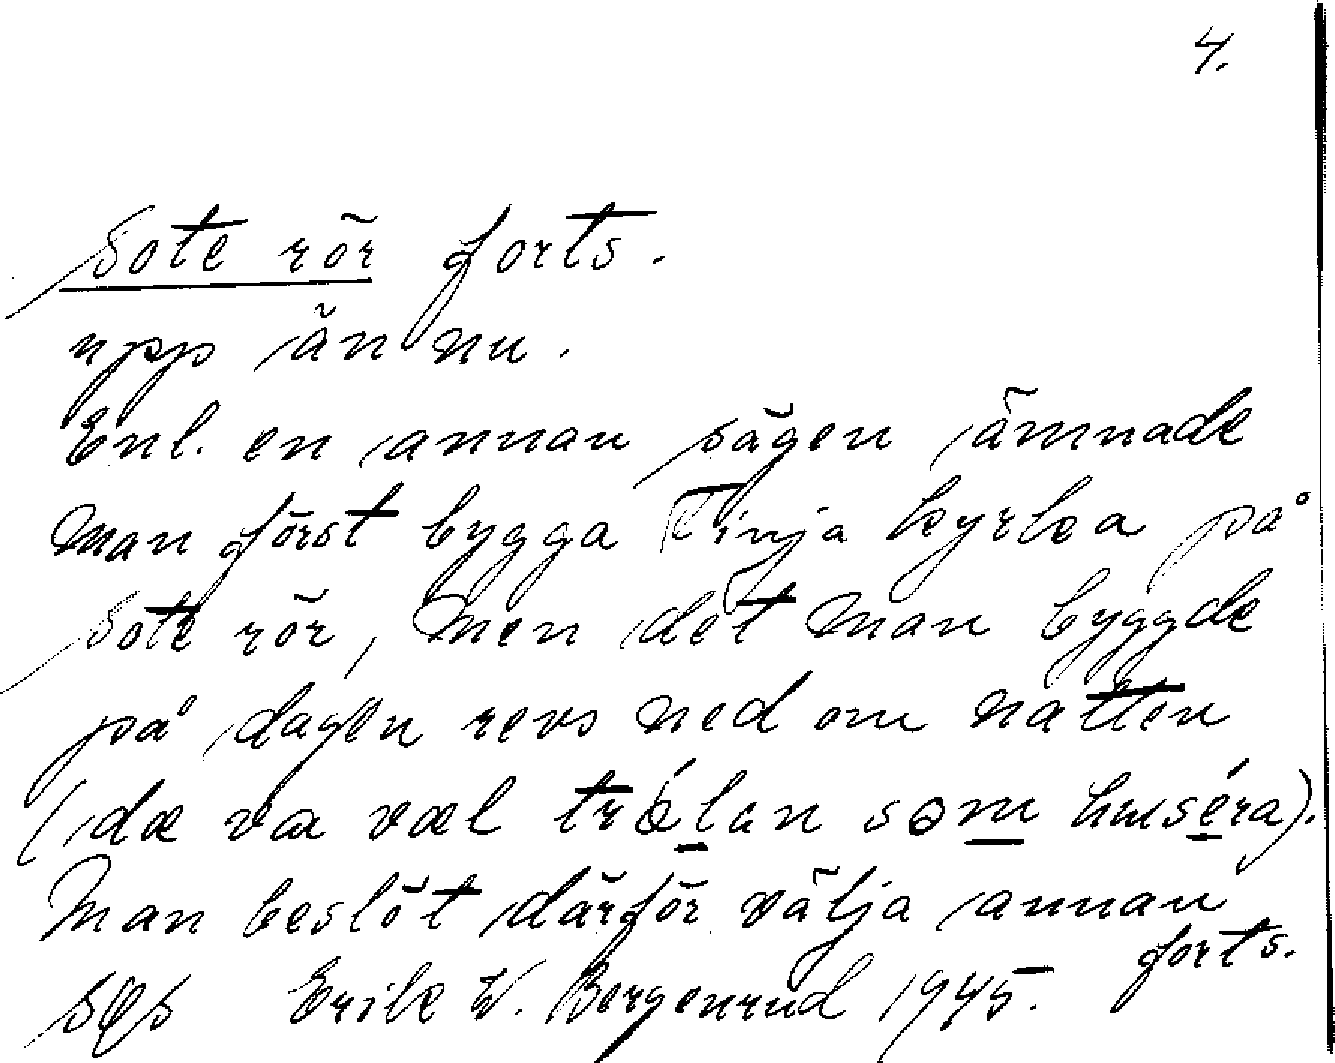 4.
Sote rör forts.
upp än nu.
Enl. en annan sägen ämnade
man först bygga Tinja kyrka på
Sote rör, men det man byggde
på dagen revs ned om natten
(dæ va væl trólan som huséra).
Man beslöt därför välja annan
forts.
Erik W. Bergenrud 1945.